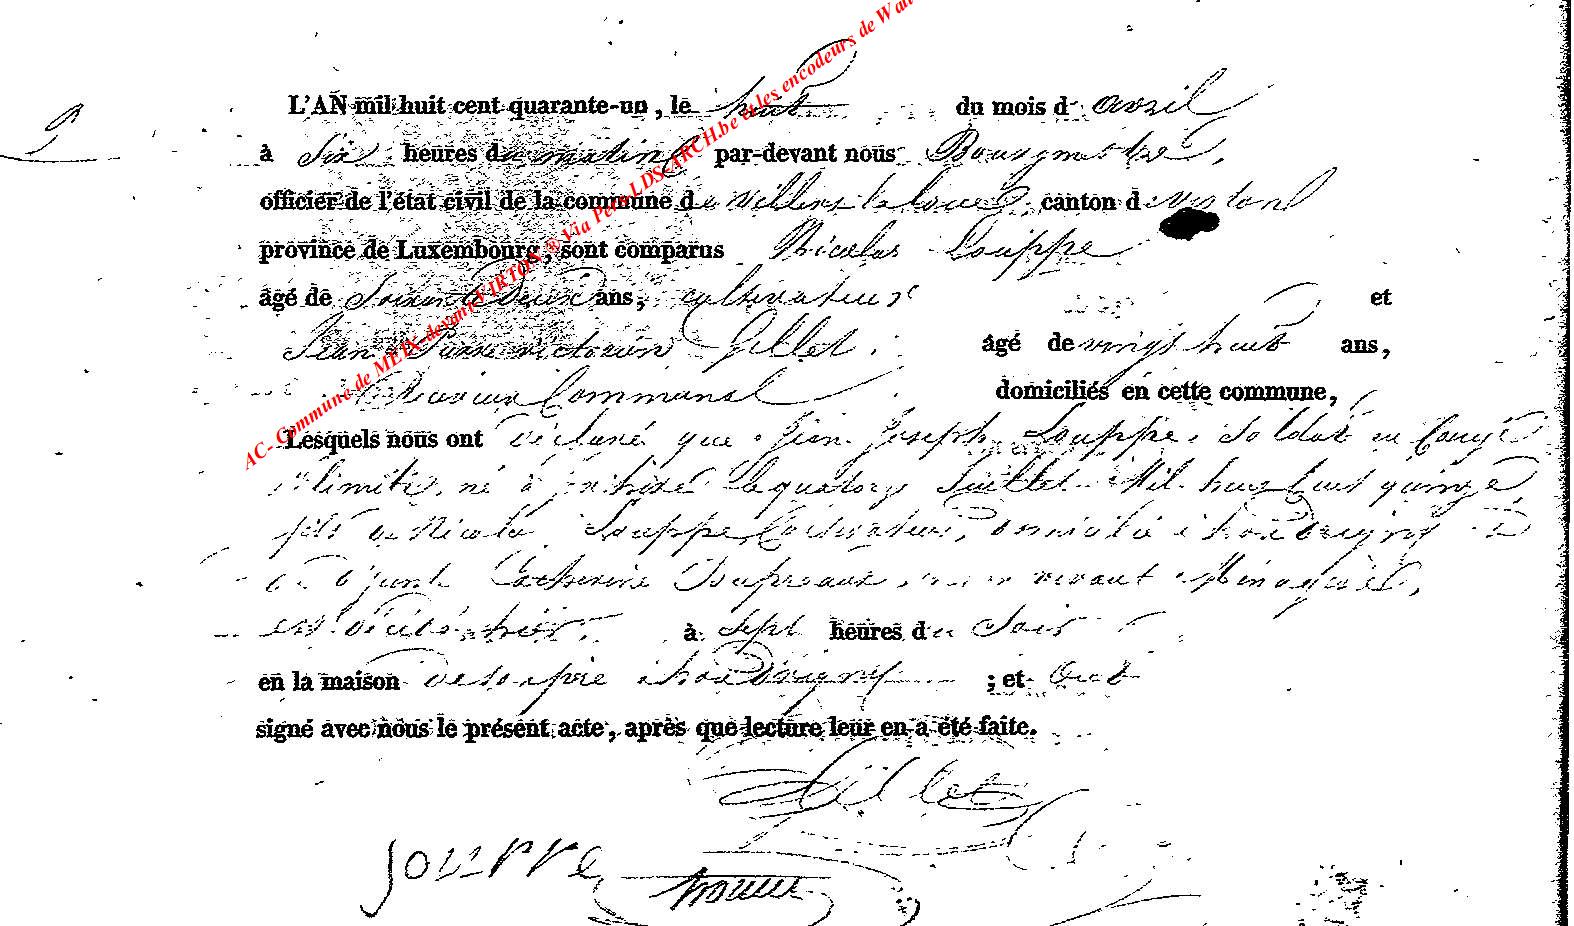 AC-Commune de MEIX-devant-VIRTON ® Via Pero LDS-ARCH.be et les encodeurs de Wall
L'AN mil huit cent quarante-un, le huit du mois d'avril
à Six heures du matin par-devant nous Bourgmestre,
officier de l'état civil de la commune de villers la loue canton de virton
province de Luxembourg, sont comparus Nicolas Souppe
âgé de Soixante Deux ans, cultivateur et
Jean Pierre victorin Gillet, âgé de vingt huit ans,
Communal domiciliés en cette commune,
Lesquels nous ont déclaré que Jean Joseph Souppe, Soldat en Congé
illimité, né à Le quatorze Juillet Mil huit Cent quinze
fils de Nicolas Souppe Cultivateur, domicilié à houdrigny
défunte Catherine Dupreaux, vivant Ménagère,
est décédé hier, à Sept heures du Soir
en la maison de son père à houdrigny ; et ont
signé avec nous le présent acte, après que lecture leur en a été faite.
Gillet
Souppe